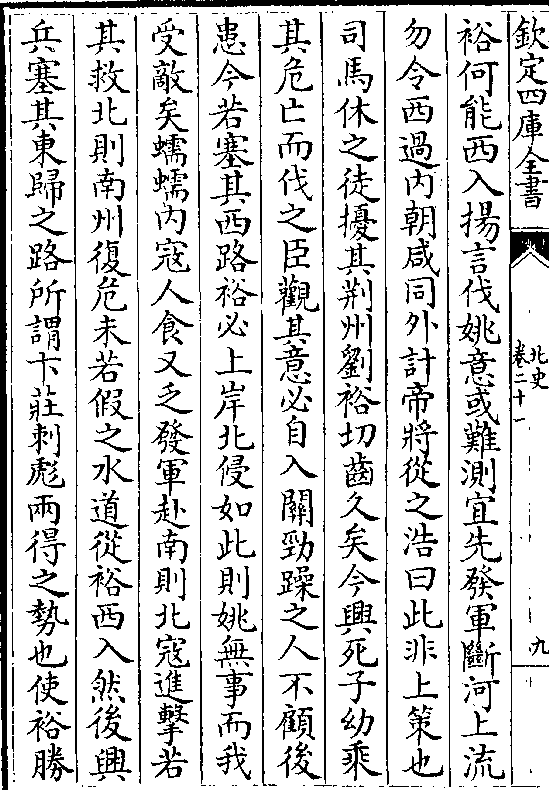 欽定四庫全書
北史
卷二十一
九
裕何能西入揚言伐姚意或難測宜先發軍斷河上流
勿令西過内朝咸同外計帝將從之浩曰此非上策也
司馬休之徒擾其荆州劉裕切齒久矣今興死子幼乘
其危亡而伐之臣觀其意必自入關勁躁之人不顧後
患今若塞其西路裕必上岸北侵如此則姚無事而我
受敵矣蠕蠕内寇人食又乏發軍赴南則北寇進擊若
其救北則南州復危未若假之水道從裕西入然後興
兵塞其東歸之路所謂卞莊刺彪兩得之勢也使裕勝